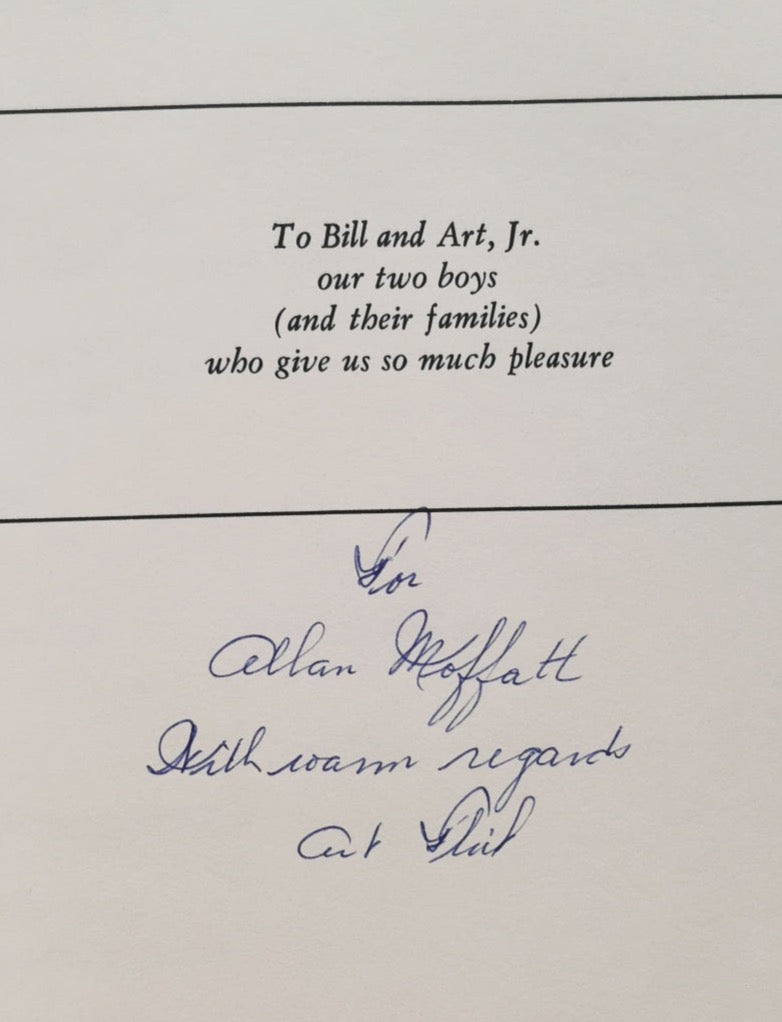 To Bill and Art, Jr.
our two boys
(and their families)
who give us so much pleasure
For
Allan Moffatt
With warm regards
Art Flick